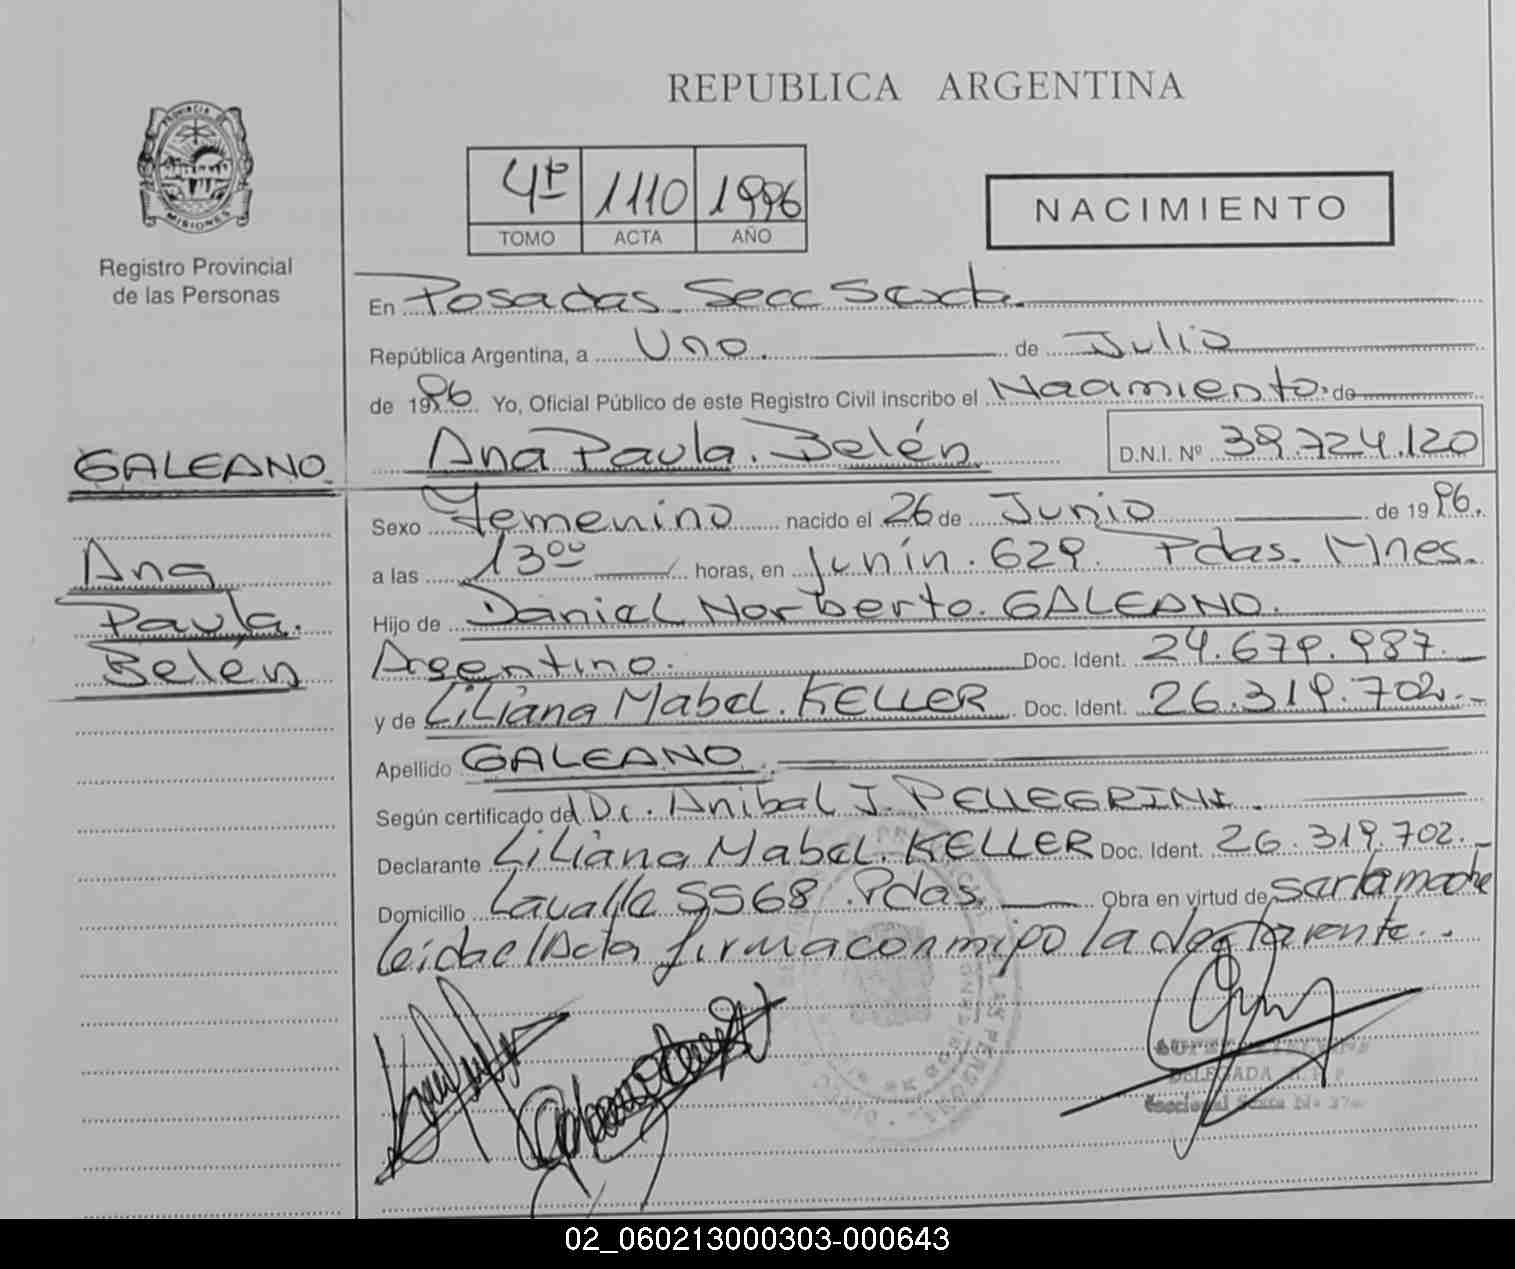 REPUBLICA ARGENTINA
PROVINCIA DE
MISIONES
Registro Provincial
de las Personas
4º 1110 1996
TOMO ACTA AÑO
NACIMIENTO
En Posadas Secc Sexta.
República Argentina, a Uno. de Julio
de 1996 Yo, Oficial Público de este Registro Civil inscribo el Nacimiento. de
GALEANO
Ana Paula. Belén
D.N.I. Nº 39.724.120
Sexo Femenino nacido el 26 de Junio de 1996.
Ana
Paula.
Belén
a las 13ºº horas, en Junín. 629. Pdas. Mnes.
Hijo de Daniel Norberto. GALEANO.
Argentino. Doc. Ident. 24.679.987.
y de Liliana Mabel. KELLER Doc. Ident. 26.319.702.
Apellido GALEANO
Según certificado del Dr. Anibal J. PELLEGRINI.
Declarante Liliana Mabel. KELLER Doc. Ident. 26.319.702.
Domicilio Lavalle 5568 Pdas. Obra en virtud de ser la madre
leida el Acta firma conmigo la declarante.
DELEGADA
Seccional Sexta
02_060213000303-000643